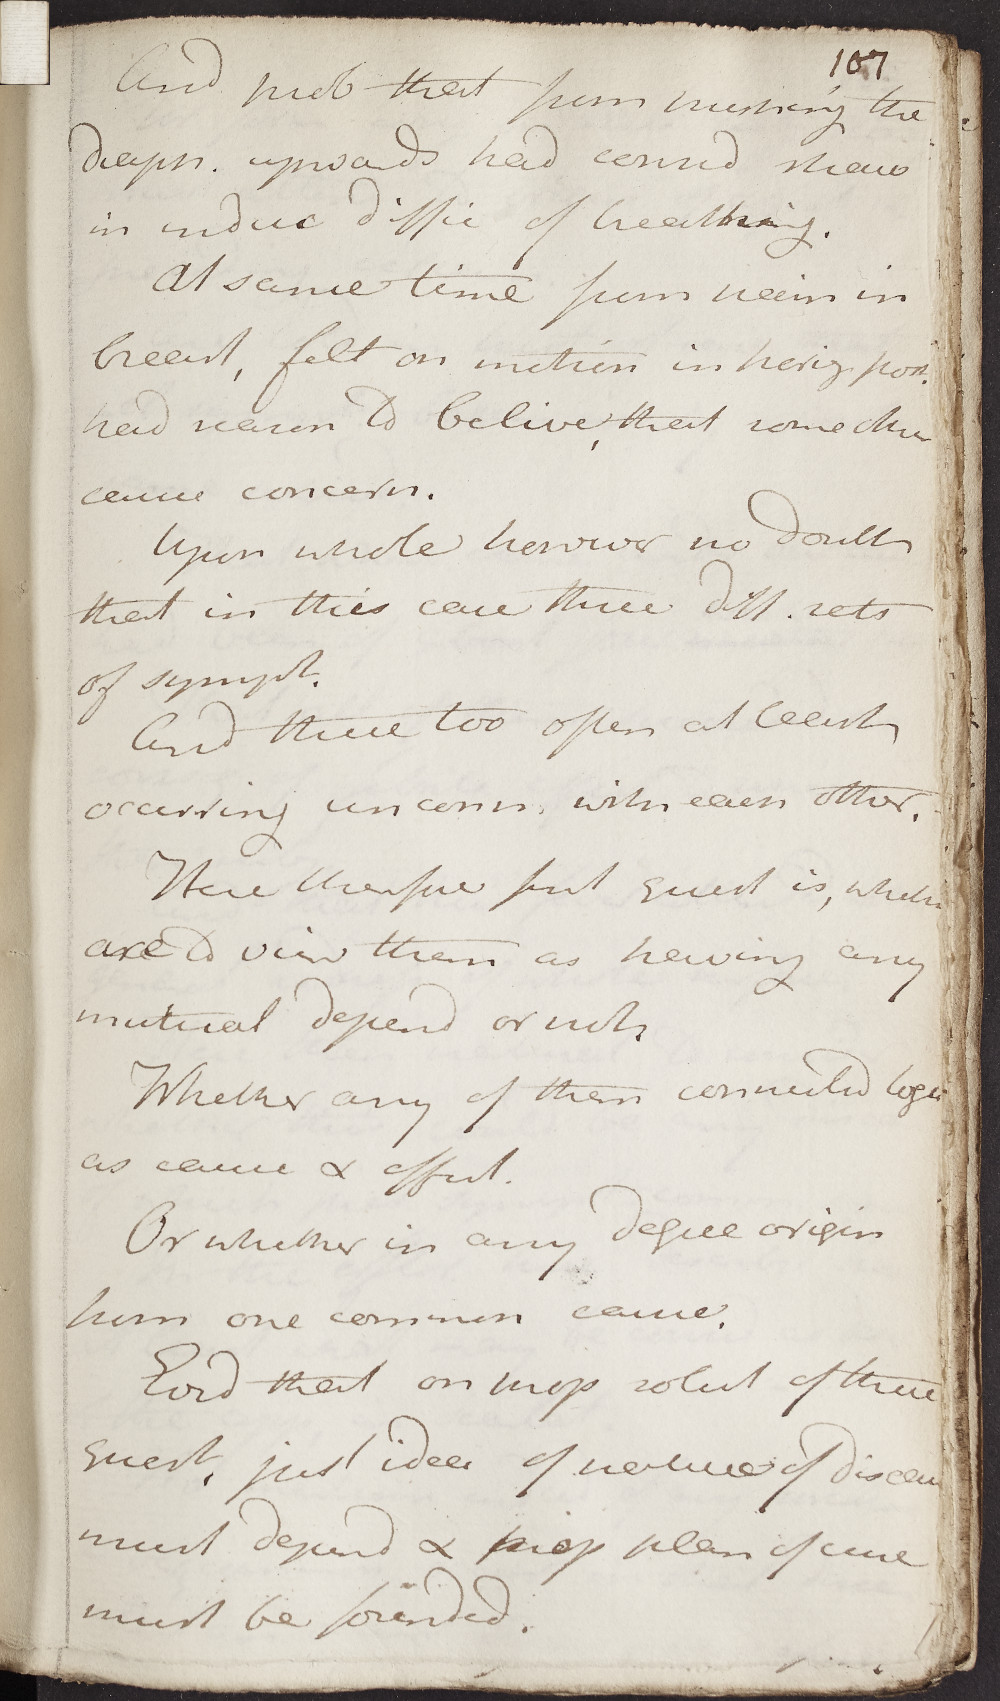 107
And prob that from pushing the
diaph. upwards had consid share
in induc diffic of breathing.
At same time from pain in
breast, felt on motion in horiz post.
had reason to belive, that some other
cause concern.
Upon whole however no doubt
that in this case three diff. sets
of sympt.
And these too often at least
occurring unconn. with each other.
Here therefore first quest is, whether
are to view them as having any
mutual depend or not.
Whether any of them connected toge
as cause & effect.
Or whether in any degree origin
from one common cause.
Evid that on prop solut of these
quest, just idea of nature of disease
must depend & prop plan of cure
must be founded.